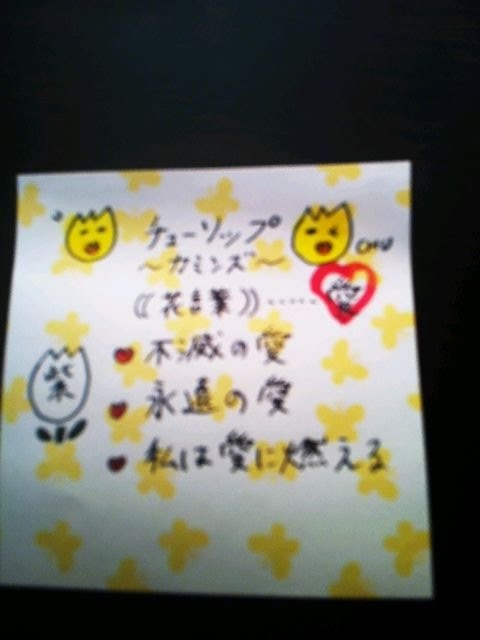 チューリップ
CHU
～カミンズ～
《花言葉》…… 愛
不滅の愛
紫
永遠の愛
私は愛に燃える